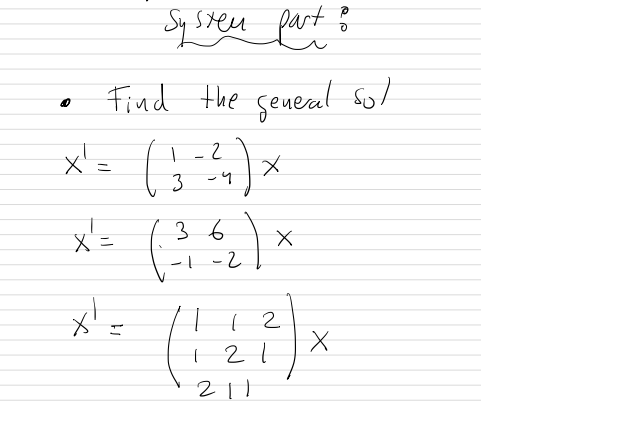 System part :
• Find the general sol
X' = ( 1 -2 ) X
3 -4
X' = ( 3 6 ) X
-1 -2
X' = ( 1 1 2
1 2 1 ) X
2 1 1